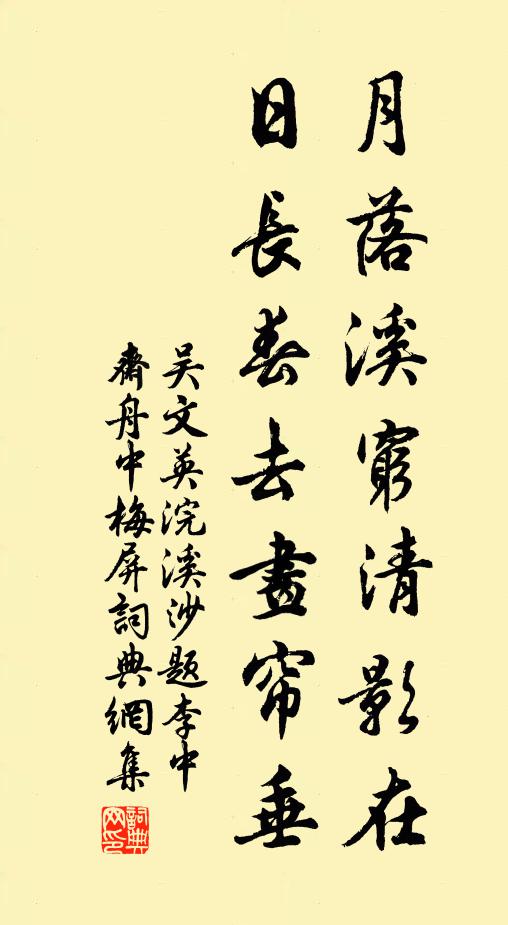 月落溪窮清影在
日長春去畫帘垂
吴文英浣溪沙题李中
齋舟中梅屏詞典網集
詞典網印